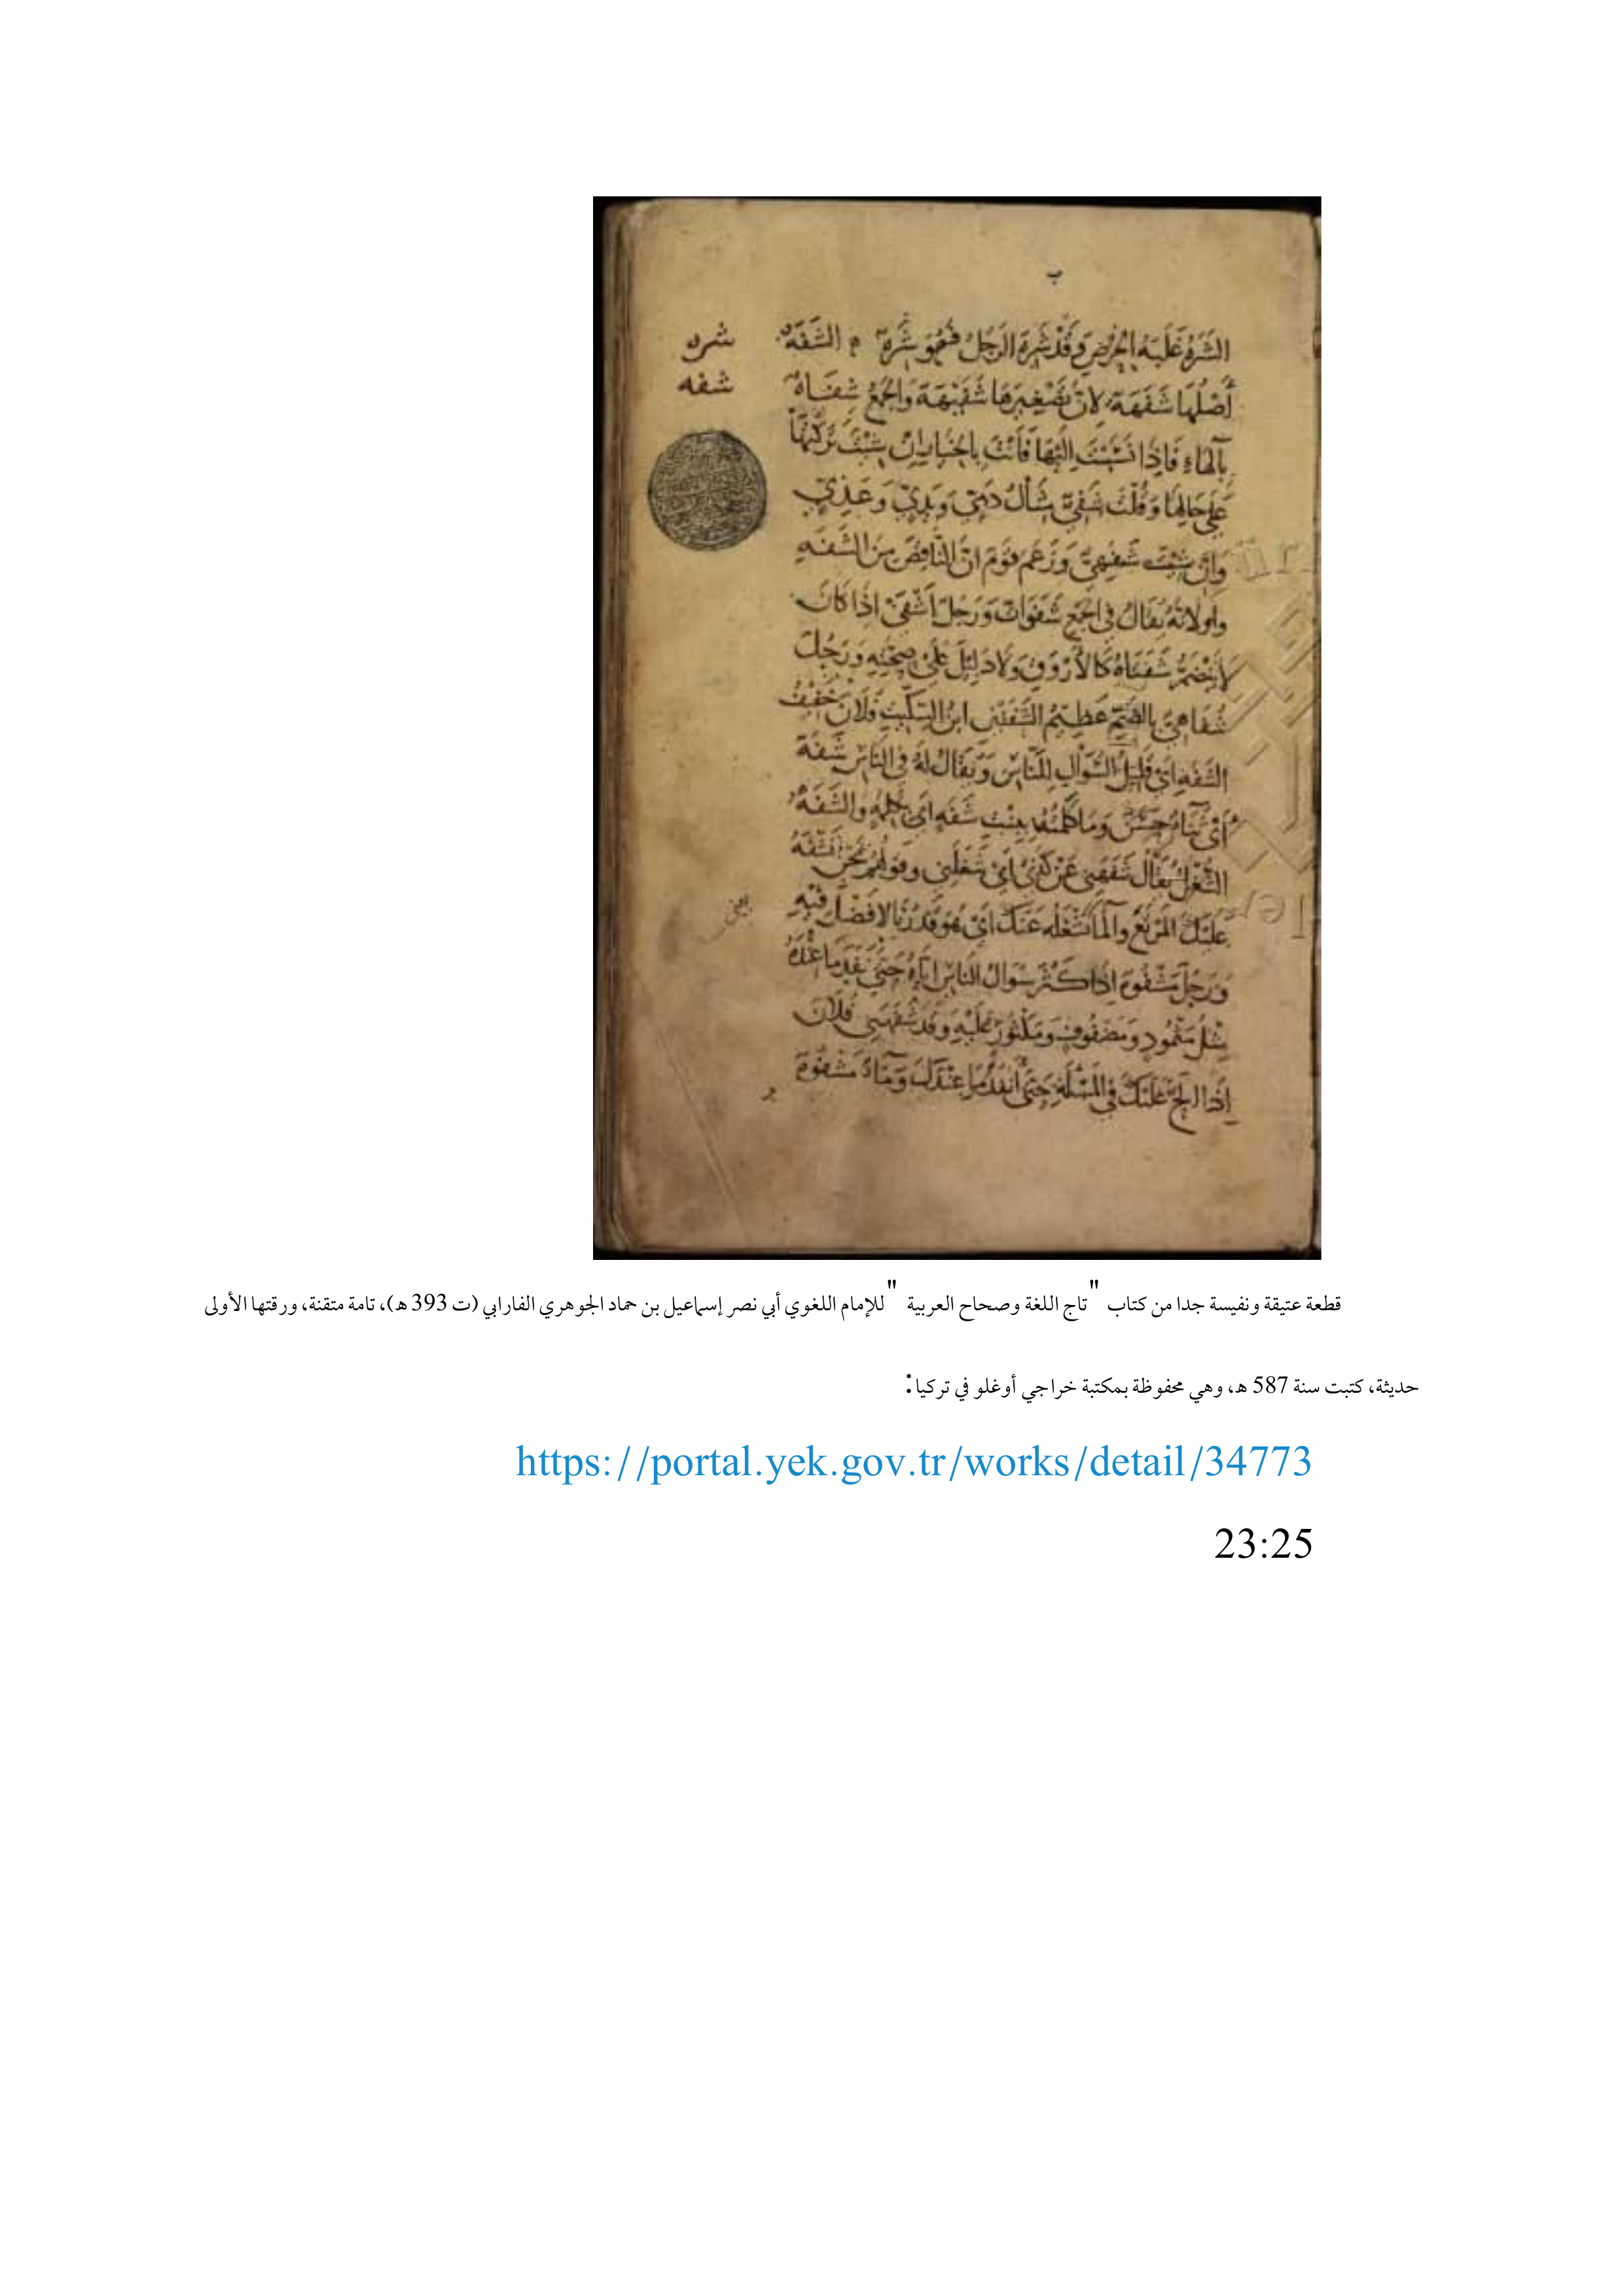 ب
الشَّرَهُ غَلَبَةُ الحِرْصِ وَقَدْ شَرِهَ الرَّجُلُ فَهُوَ شَرِهٌ م الشَّفَةُ
شره
أَصْلُهَا شَفَهَةٌ لِأَنَّ تَصْغِيرَهَا شُفَيْهَةٌ وَالجَمْعُ شِفَاهٌ
شفه
بِالهَاءِ فَإِذَا نَسَبْتَ إِلَيْهَا فَأَنْتَ بِالخِيَارِ إِنْ شِئْتَ تَرَكْتَهَا
عَلَى حَالِهَا وَقُلْتَ شَفِيٌّ مِثَالُ دَمِيٍّ وَيَدِيٍّ وَعَدِيٍّ
وَإِنْ شِئْتَ شَفَهِيٌّ وَزَعَمَ قَوْمٌ أَنَّ النَّاقِصَ مِنَ الشَّفَةِ
وَاوٌ لِأَنَّهُ يُقَالُ فِي الجَمْعِ شَفَوَاتٌ وَرَجُلٌ أَشْفَى إِذَا كَانَ
لَا يَنْضَمُّ شَفَتَاهُ كَالأَرْوَقِ وَلَا دَلِيلَ عَلَى صِحَّتِهِ وَرَجُلٌ
شُفَاهِيٌّ بِالضَّمِّ عَظِيمُ الشَّفَتَيْنِ ابنُ السِّكِّيتِ فُلَانٌ خَفِيفُ
الشَّفَةِ أَيْ قَلِيلُ السُّؤَالِ لِلنَّاسِ وَيُقَالُ لَهُ فِي النَّاسِ شَفَةٌ
أَيْ ثَنَاءٌ حَسَنٌ وَمَا كَلَّمْتُهُ بِبِنْتِ شَفَةٍ أَيْ بِكَلِمَةٍ وَالشَّفْهُ
الشُّغْلُ يُقَالُ شَفَهَنِي عَنْ كَذَا أَيْ شَغَلَنِي وَقَوْلُهُمْ نَحْنُ نَشْفَهُ
عَلَيْكَ المَرْتَعَ وَالمَاءَ نَشْغَلُهُ عَنْكَ أَيْ هُوَ قَدْرُنَا لَا فَضْلَ فِيهِ
وَرَجُلٌ مَشْفُوهٌ إِذَا كَثُرَ سُؤَالُ النَّاسِ إِيَّاهُ حَتَّى نَفِدَ مَا عِنْدَهُ
مِثْلُ مَثْمُودٍ وَمَضْفُوفٍ وَمَكْثُورٍ عَلَيْهِ وَقَدْ شَفَهَنِي فُلَانٌ
إِذَا أَلَحَّ عَلَيْكَ فِي المَسْئَلَةِ حَتَّى أَنْفَدَ مَا عِنْدَكَ وَمَاءٌ مَشْفُوهٌ
قطعة عتيقة ونفيسة جدا من كتاب "تاج اللغة وصحاح العربية " للإمام اللغوي أبي نصر إسماعيل بن حماد الجوهري الفارابي (ت 393 هـ)، تامة متقنة، ورقتها الأولى
حديثة، كتبت سنة 587 هـ، وهي محفوظة بمكتبة خراجي أوغلو في تركيا:
https://portal.yek.gov.tr/works/detail/34773
23:25